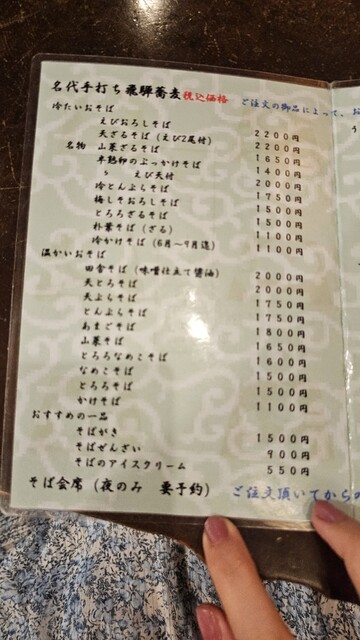 名代手打ち飛騨蕎麦 税込価格 ご注文の御品によって、お
冷たいおそば
えびおろしそば 2200円
天ざるそば (えび2尾付) 2200円
名物 山菜ざるそば 1650円
半熟卵のぶっかけそば 1400円
〃 えび天付 2000円
冷とんぷらそば 1750円
梅しそおろしそば 1500円
とろろざるそば 1500円
朴葉そば (ざる) 1100円
冷かけそば (6月〜9月迄) 1100円
温かいおそば
田舎そば (味噌仕立て醤油) 2000円
天とろそば 2000円
天ぷらそば 1750円
とんぷらそば 1750円
あまごそば 1800円
山菜そば 1650円
とろろなめこそば 1600円
なめこそば 1500円
とろろそば 1500円
かけそば 1100円
おすすめの一品
そばがき 1500円
そばぜんざい 900円
そばのアイスクリーム 550円
そば会席 (夜のみ 要予約) ご注文頂いてからの